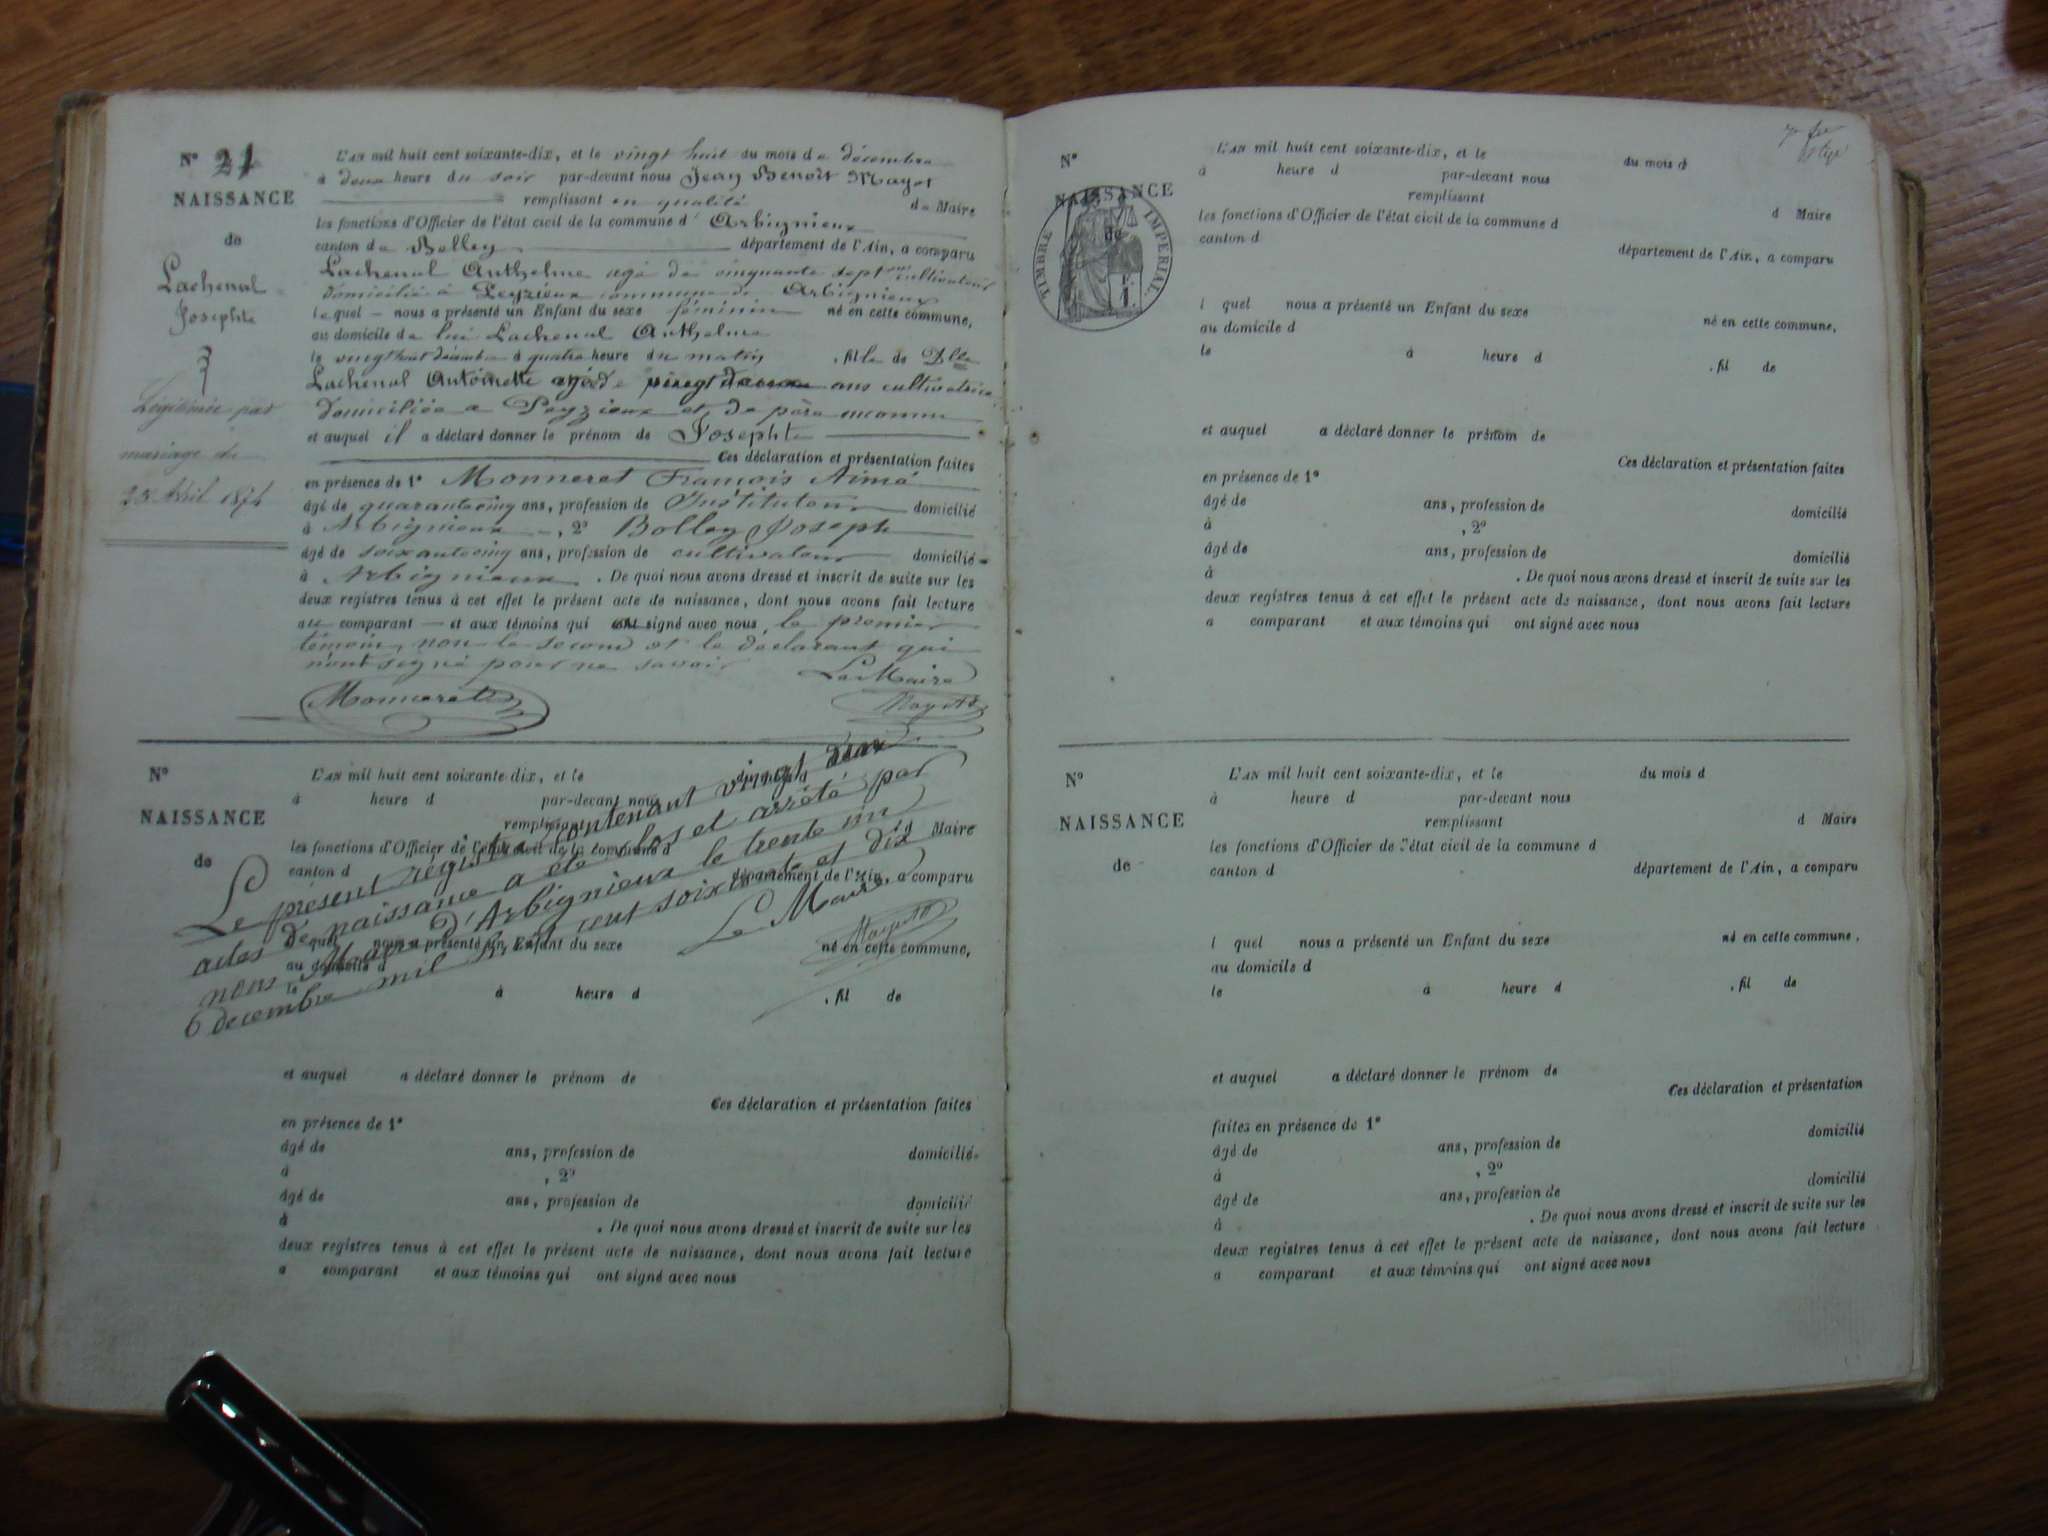 N° 21
NAISSANCE
de
Lachenal
Josephte
Légitimée par
mariage du
25 Avril 1874
L'AN mil huit cent soixante-dix, et le vingt huit du mois de décembre
à deux heure du soir par-devant nous Jean Benoît Mayet
remplissant en qualité de Maire
les fonctions d'Officier de l'état civil de la commune d'Arbignieux
canton de Belley département de l'Ain, a comparu
Lachenal Anthelme agé de cinquante sept ans cultivateur
domicilié à Peyzieux commune de Arbignieux
lequel — nous a présenté un Enfant du sexe féminin né en cette commune,
au domicile de lui Lachenal Anthelme
le vingt huit décembre à quatre heure du matin , fille de Dlle
Lachenal Antoinette agée de vingt deux ans cultivatrice
domiciliée a Peyzieux et de père inconnu
et auquel il a déclaré donner le prénom de Josephte
Ces déclaration et présentation faites
en présence de 1° Monneret François Aimé
âgé de quarante cinq ans, profession de Instituteur domicilié
à Arbignieux , 2° Bolley Joseph
âgé de soixante cinq ans, profession de cultivateur domicilié
à Arbignieux . De quoi nous avons dressé et inscrit de suite sur les
deux registres tenus à cet effet le présent acte de naissance, dont nous avons fait lecture
au comparant — et aux témoins qui ont signé avec nous le premier
témoin, non le second et le déclarant qui
n'ont signé pour ne savoir Le Maire
Monneret Mayet
N°
NAISSANCE
de
L'AN mil huit cent soixante-dix, et le du mois d
à heure d par-devant nous
remplissant d Maire
les fonctions d'Officier de l'état civil de la commune d
canton d département de l'Ain, a comparu
Le présent régistre contenant vingt deux
actes de naissance a été clos et arrêté par
nous Maire d'Arbignieux le trente un
decembre mil huit cent soixante et dix
Le Maire
Mayet
l quel nous a présenté un Enfant du sexe né en cette commune,
au domicile d
le à heure d , fil de
et auquel a déclaré donner le prénom de
Ces déclaration et présentation faites
en présence de 1°
âgé de ans, profession de domicilié
à , 2°
âgé de ans, profession de domicilié
à . De quoi nous avons dressé et inscrit de suite sur les
deux registres tenus à cet effet le présent acte de naissance, dont nous avons fait lecture
a comparant et aux témoins qui ont signé avec nous
N°
NAISSANCE
de
TIMBRE IMPERIAL
L'AN mil huit cent soixante-dix, et le du mois d
à heure d par-devant nous
remplissant d Maire
les fonctions d'Officier de l'état civil de la commune d
canton d département de l'Ain, a comparu
l quel nous a présenté un Enfant du sexe né en cette commune,
au domicile d
le à heure d , fil de
et auquel a déclaré donner le prénom de
Ces déclaration et présentation faites
en présence de 1°
âgé de ans, profession de domicilié
à , 2°
âgé de ans, profession de domicilié
à . De quoi nous avons dressé et inscrit de suite sur les
deux registres tenus à cet effet le présent acte de naissance, dont nous avons fait lecture
a comparant et aux témoins qui ont signé avec nous
N°
NAISSANCE
de
L'AN mil huit cent soixante-dix, et le du mois d
à heure d par-devant nous
remplissant d Maire
les fonctions d'Officier de l'état civil de la commune d
canton d département de l'Ain, a comparu
l quel nous a présenté un Enfant du sexe né en cette commune,
au domicile d
le à heure d , fil de
et auquel a déclaré donner le prénom de
Ces déclaration et présentation
faites en présence de 1°
âgé de ans, profession de domicilié
à , 2°
âgé de ans, profession de domicilié
à . De quoi nous avons dressé et inscrit de suite sur les
deux registres tenus à cet effet le présent acte de naissance, dont nous avons fait lecture
a comparant et aux témoins qui ont signé avec nous